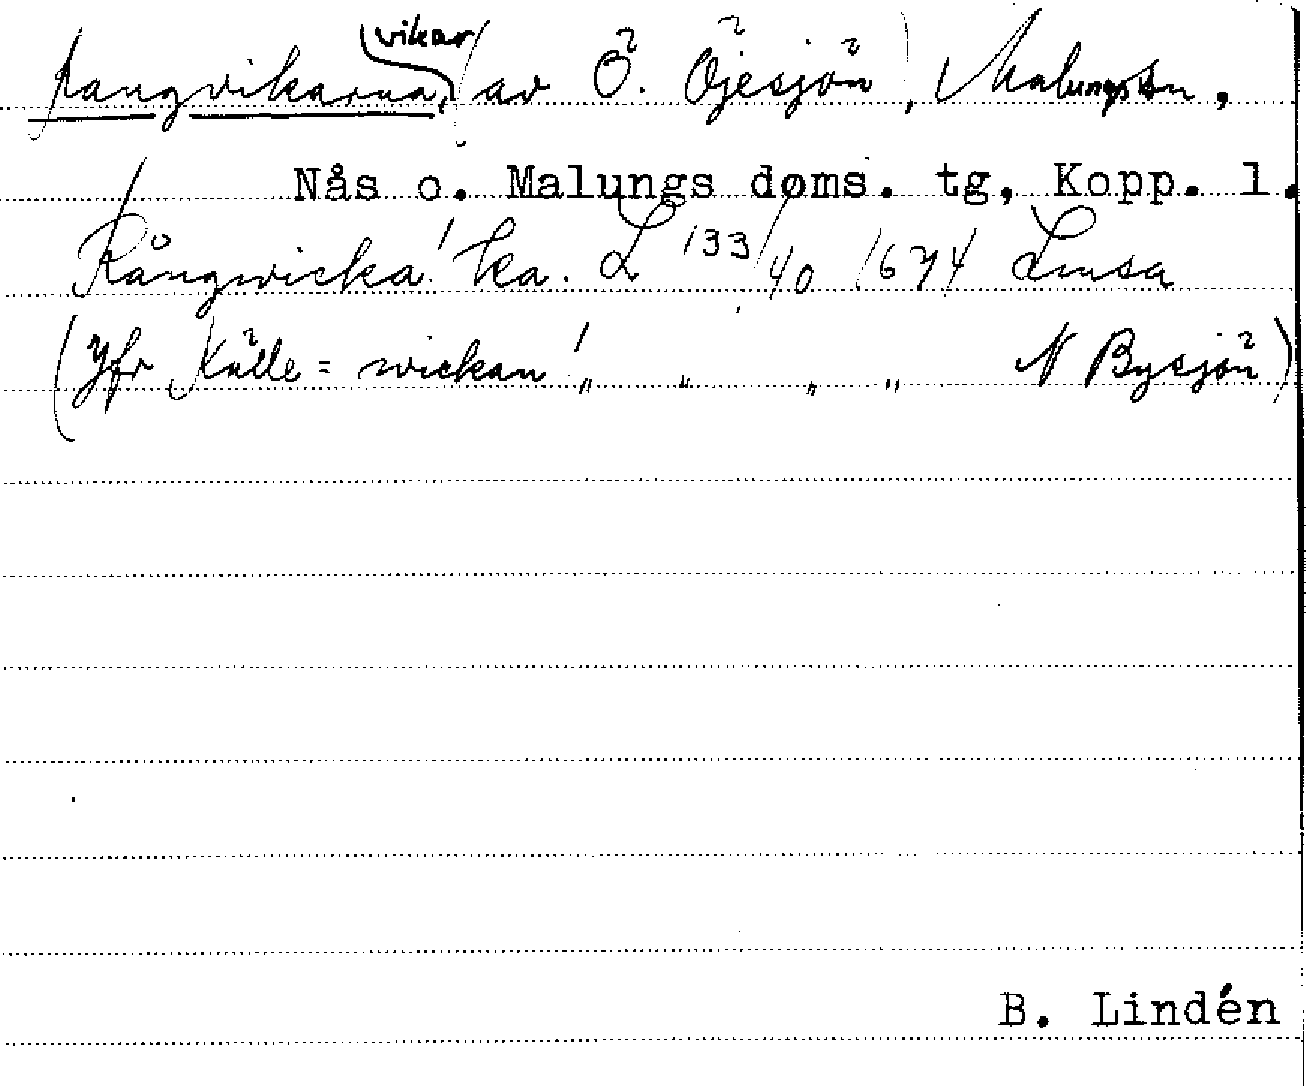 (vikar
Rångvikarna, av Ö. Öjesjön, Malungs sn,
Nås o. Malungs doms. tg, Kopp. l.
Rångwicka! ka. L 133/40 1674
(Jfr Källe = wickan! " " " " N Bysjön)
B. Lindén